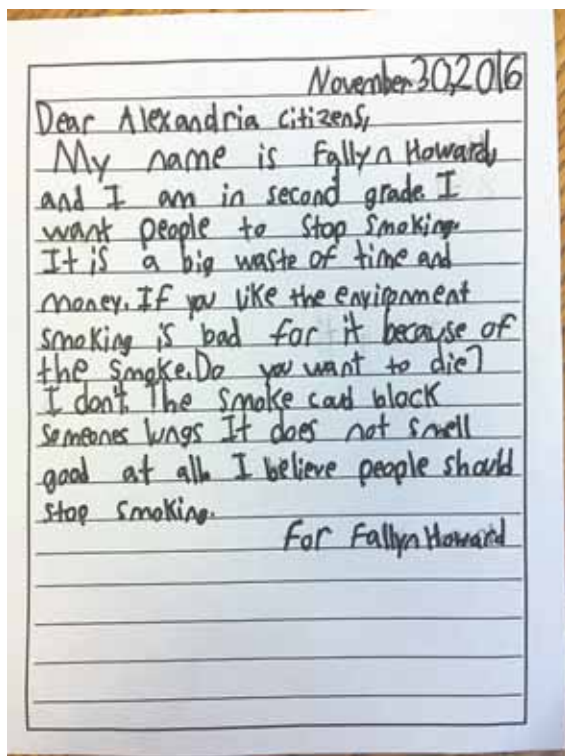 November 30, 2016
Dear Alexandria citizens,
My name is Fallyn Howard,
and I am in second grade. I
want people to stop smoking.
It is a big waste of time and
money. If you like the enviornment
smoking is bad for it because of
the smoke. Do you want to die?
I don't. The smoke block
someones lungs It does not smell
good at all. I believe people should
stop smoking.
For Fallyn Howard